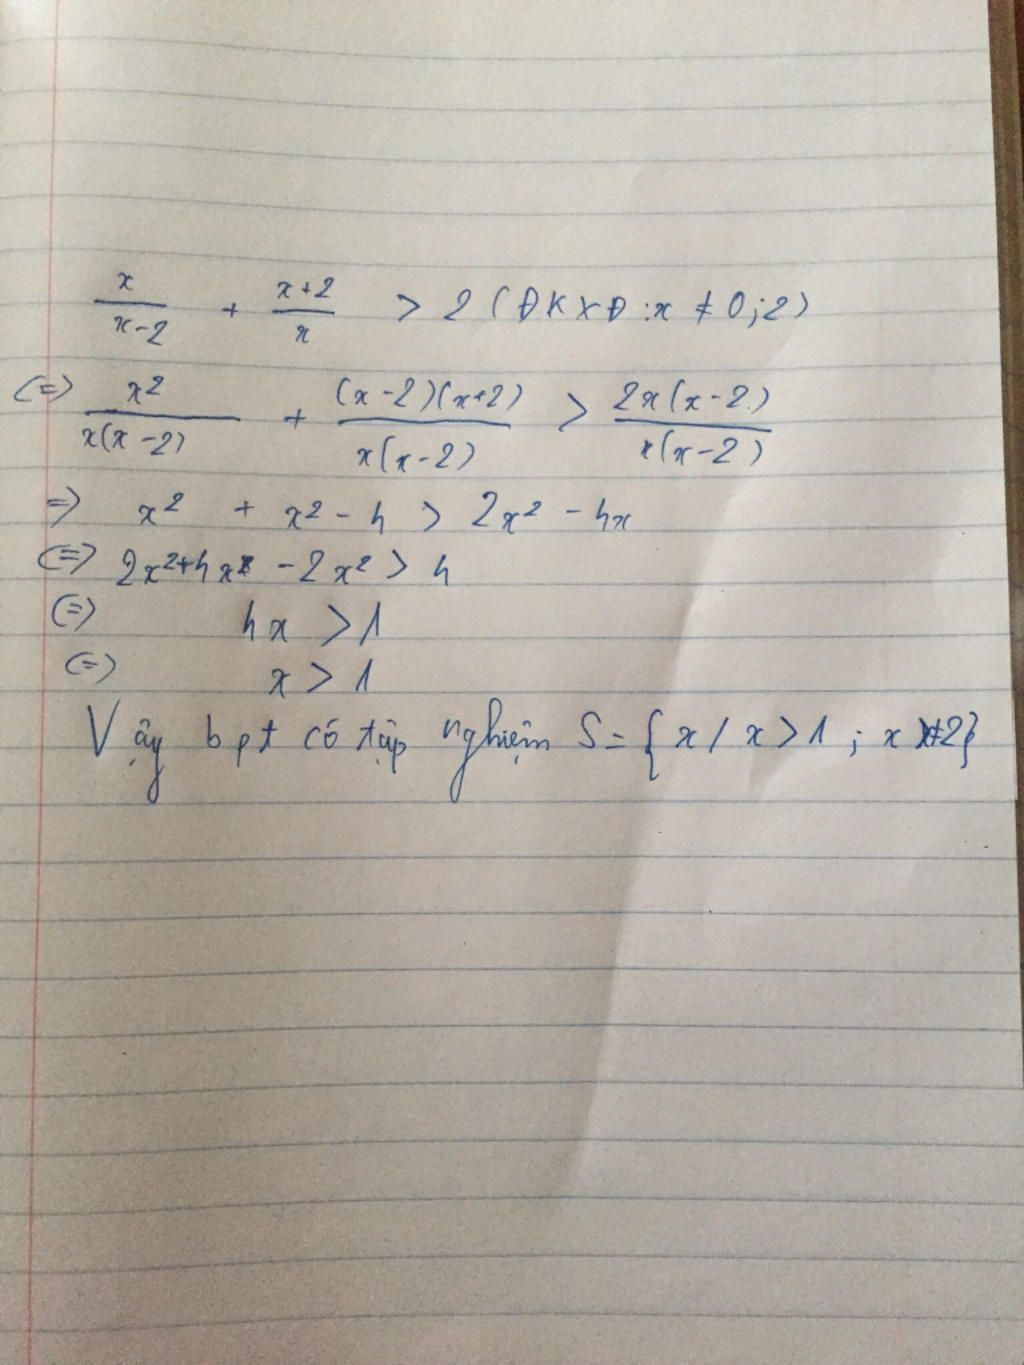 x/(x-2) + (x+2)/x > 2 (ĐKXĐ: x ≠ 0; 2)
(=) x²/(x(x-2)) + ((x-2)(x+2))/(x(x-2)) > (2x(x-2))/(x(x-2))
=) x² + x² - 4 > 2x² - 4x
(=) 2x² + 4x - 2x² > 4
(=) 4x > 1
(=) x > 1
Vậy bpt có tập nghiệm S = {x / x > 1 ; x ≠ 2}